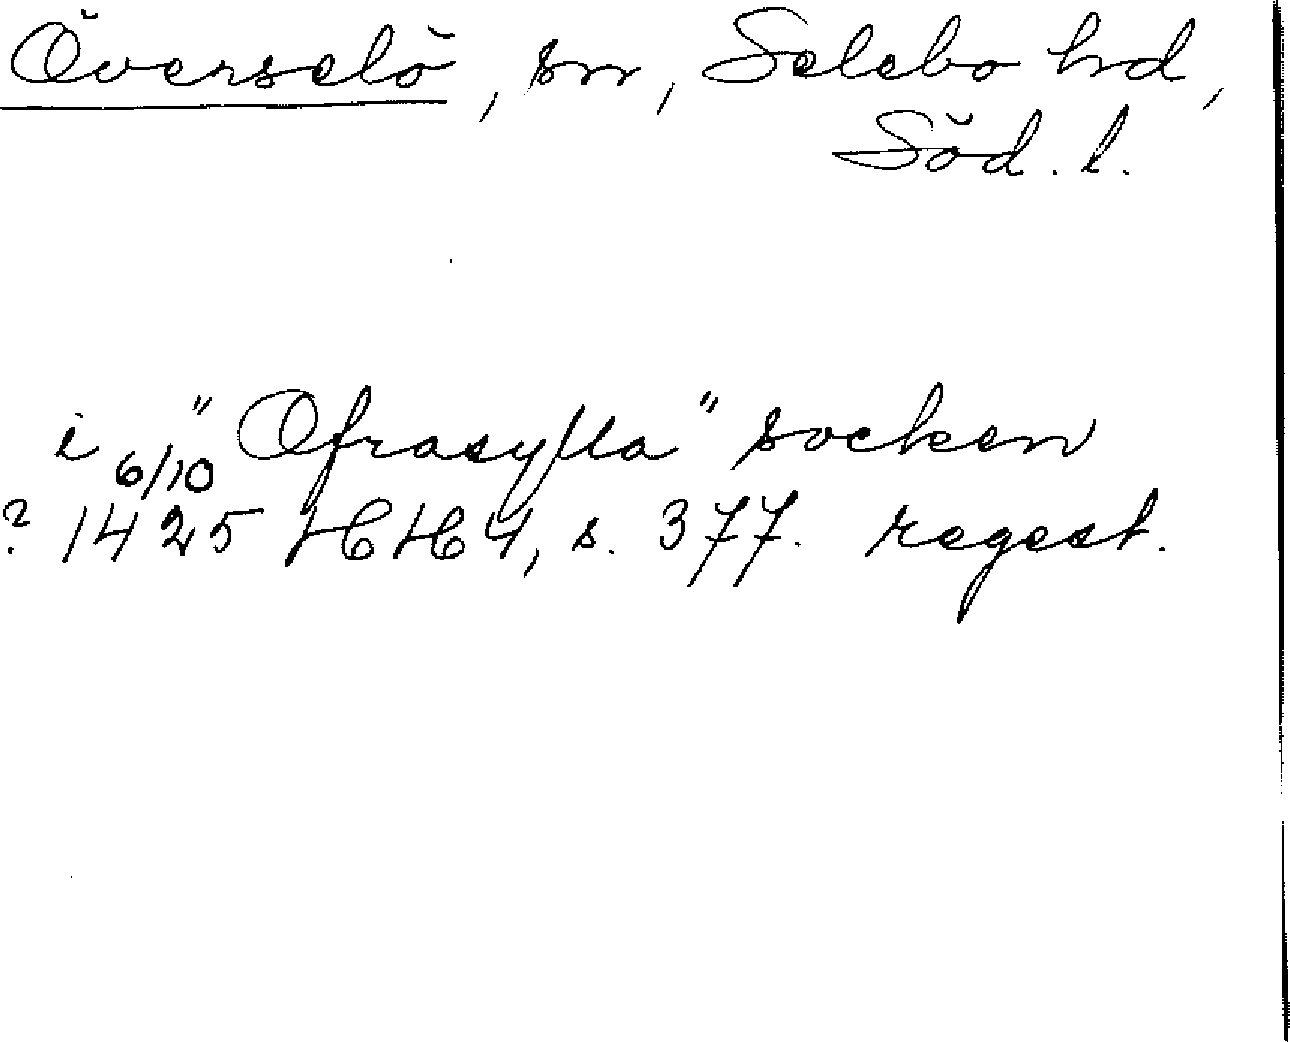 Överselö, sn, Selebo hd,
Söd. l.
i "Ofrasylla" socken
? 6/10 1425 HH 4, s. 377. regest.